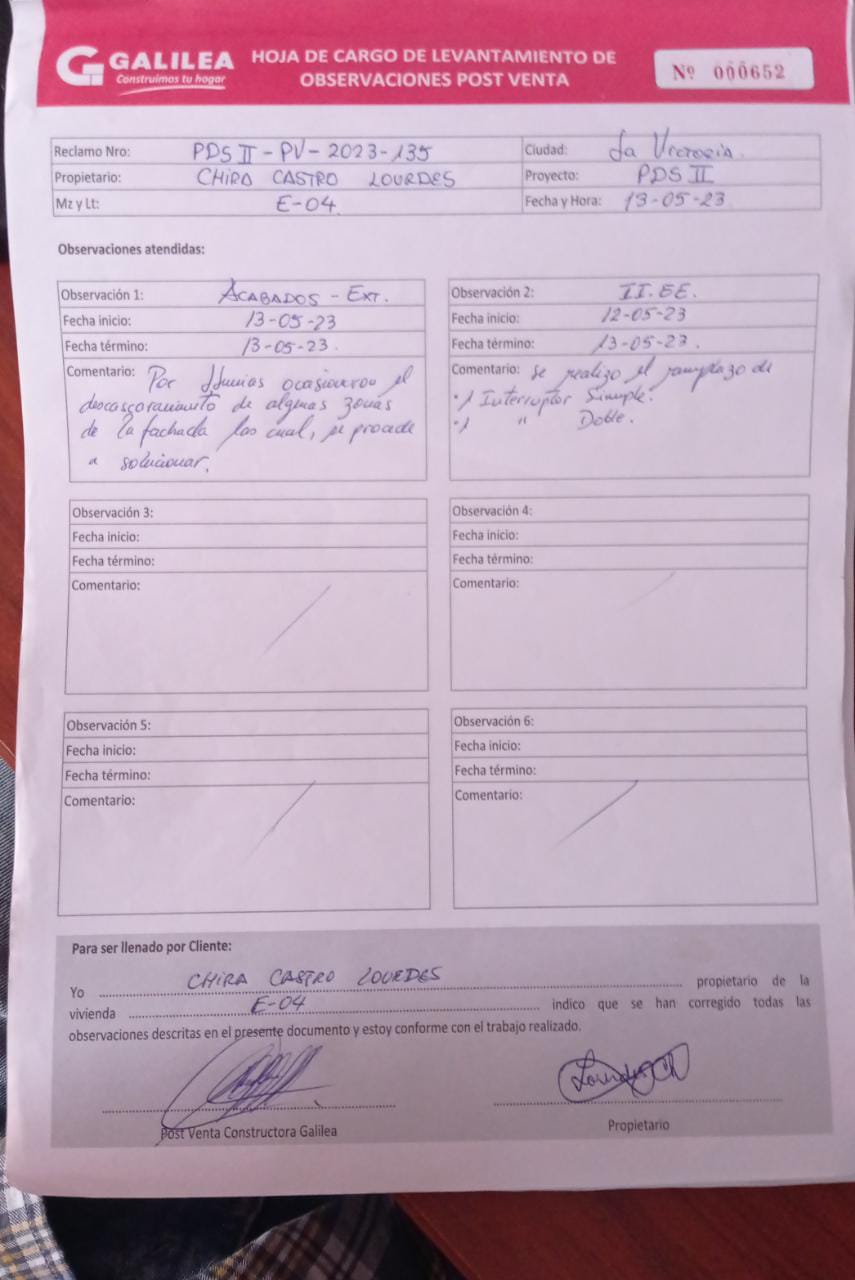 GALILEA
Construimos tu hogar
HOJA DE CARGO DE LEVANTAMIENTO DE
OBSERVACIONES POST VENTA
Nº 000652
Reclamo Nro: PDS II - PV - 2023 - 135
Ciudad: La Victoria.
Propietario: CHIRA CASTRO LOURDES
Proyecto: PDS II
Mz y Lt: E-04
Fecha y Hora: 13-05-23
Observaciones atendidas:
Observación 1: ACABADOS - EXT.
Fecha inicio: 13-05-23
Fecha término: 13-05-23.
Comentario: Por lluvias ocasionaron el
descascaramiento de algunas zonas
de la fachada los cual, se procede
a solucionar.
Observación 2: II.EE.
Fecha inicio: 12-05-23
Fecha término: 13-05-23.
Comentario: se realizo el remplazo de
• 1 Interruptor Simple.
• 1 " Doble.
Observación 3:
Fecha inicio:
Fecha término:
Comentario:
Observación 4:
Fecha inicio:
Fecha término:
Comentario:
Observación 5:
Fecha inicio:
Fecha término:
Comentario:
Observación 6:
Fecha inicio:
Fecha término:
Comentario:
Para ser llenado por Cliente:
Yo CHIRA CASTRO LOURDES propietario de la
vivienda E-04 indico que se han corregido todas las
observaciones descritas en el presente documento y estoy conforme con el trabajo realizado.
Post Venta Constructora Galilea
Propietario